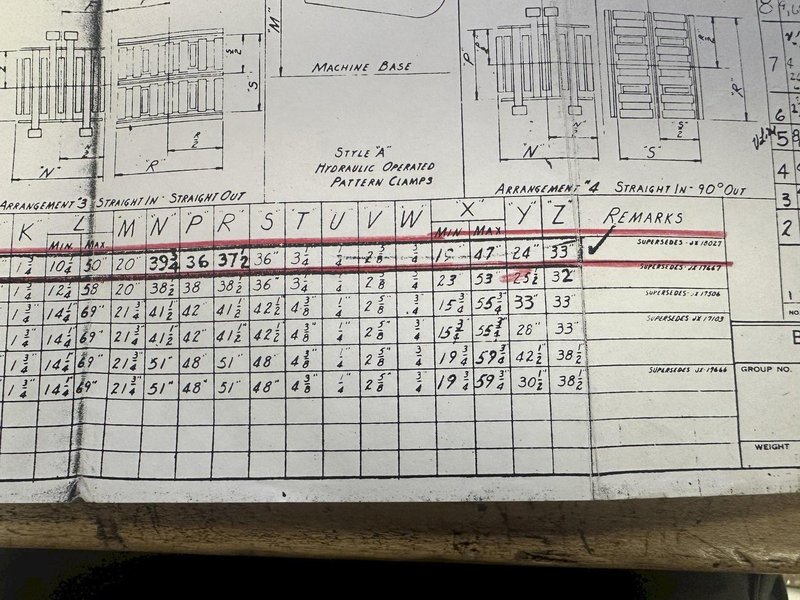 "M"
MACHINE BASE
STYLE "A"
HYDRAULIC OPERATED
PATTERN CLAMPS
"N"
"R"
"S"
"P"
"N"
"S"
"R"
ARRANGEMENT #3 STRAIGHT IN - STRAIGHT OUT
ARRANGEMENT #4 STRAIGHT IN - 90° OUT
K L M "N" "P" "R" S T U V W "X" "Y" Z REMARKS
MIN MAX MIN MAX
1 3/4 10 1/4 50" 20" 39 3/4 36 37 1/2 36" 3 1/4 1/4 2 5/8 3/4 47" 24" 33" SUPERSEDES - JX 18027
1 3/4" 12 1/4 58 20" 38 1/2 38 38 1/2 36" 3 1/4 1/4 2 5/8 3/4 23" 53" 25 1/2 32" SUPERSEDES - JX 19667
1 3/4" 14 1/4 69" 21 3/4 41 1/2 42" 41 1/2 42 1/2 4 3/8 1/4 2 5/8 3/4 15 3/4 55 3/4 33" 33" SUPERSEDES - JX 17506
1 3/4" 14 1/4 69" 21 3/4 41 1/2 42" 41 1/2 42 1/2 4 3/8 1/4 2 5/8 3/4 15 3/4 55 3/4 28" 33" SUPERSEDES JX 17103
1 3/4" 14 1/4 69" 21 3/4 51" 48" 51" 48" 4 3/8 1/4 2 5/8 3/4 19 3/4 59 3/4 42 1/2 38 1/2
1 3/4" 14 1/4 69" 21 3/4 51" 48" 51" 48" 4 3/8 1/4 2 5/8 3/4 19 3/4 59 3/4 30 1/2 38 1/2 SUPERSEDES JX 19666
8
7
6
5
4
3
2
1
NO
GROUP NO.
WEIGHT